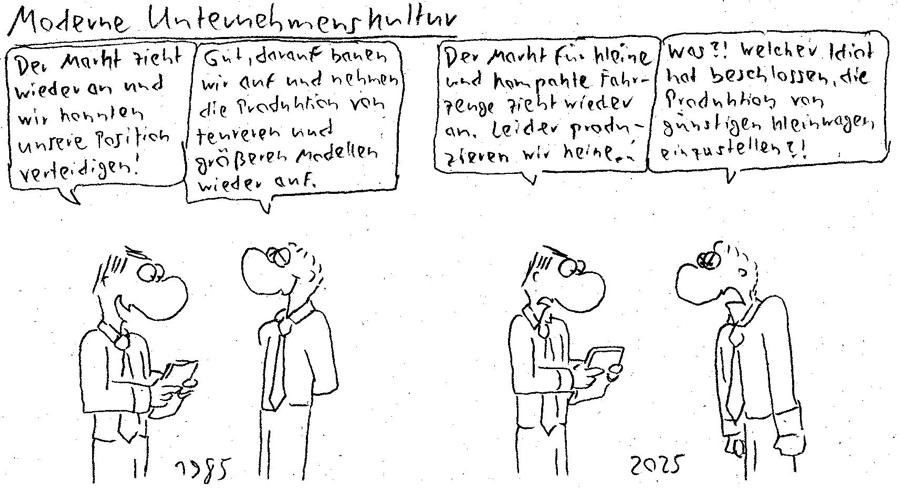 Moderne Unternehmenskultur
Der Markt zieht
wieder an und
wir konnten
unsere Position
verteidigen!
Gut, darauf bauen
wir auf und nehmen
die Produktion von
teureren und
größeren Modellen
wieder auf.
Der Markt für kleine
und kompakte Fahr-
zeuge zieht wieder
an. Leider produ-
zieren wir keine..!
Was?! Welcher Idiot
hat beschlossen, die
Produktion von
günstigen Kleinwagen
einzustellen?!
1985
2025